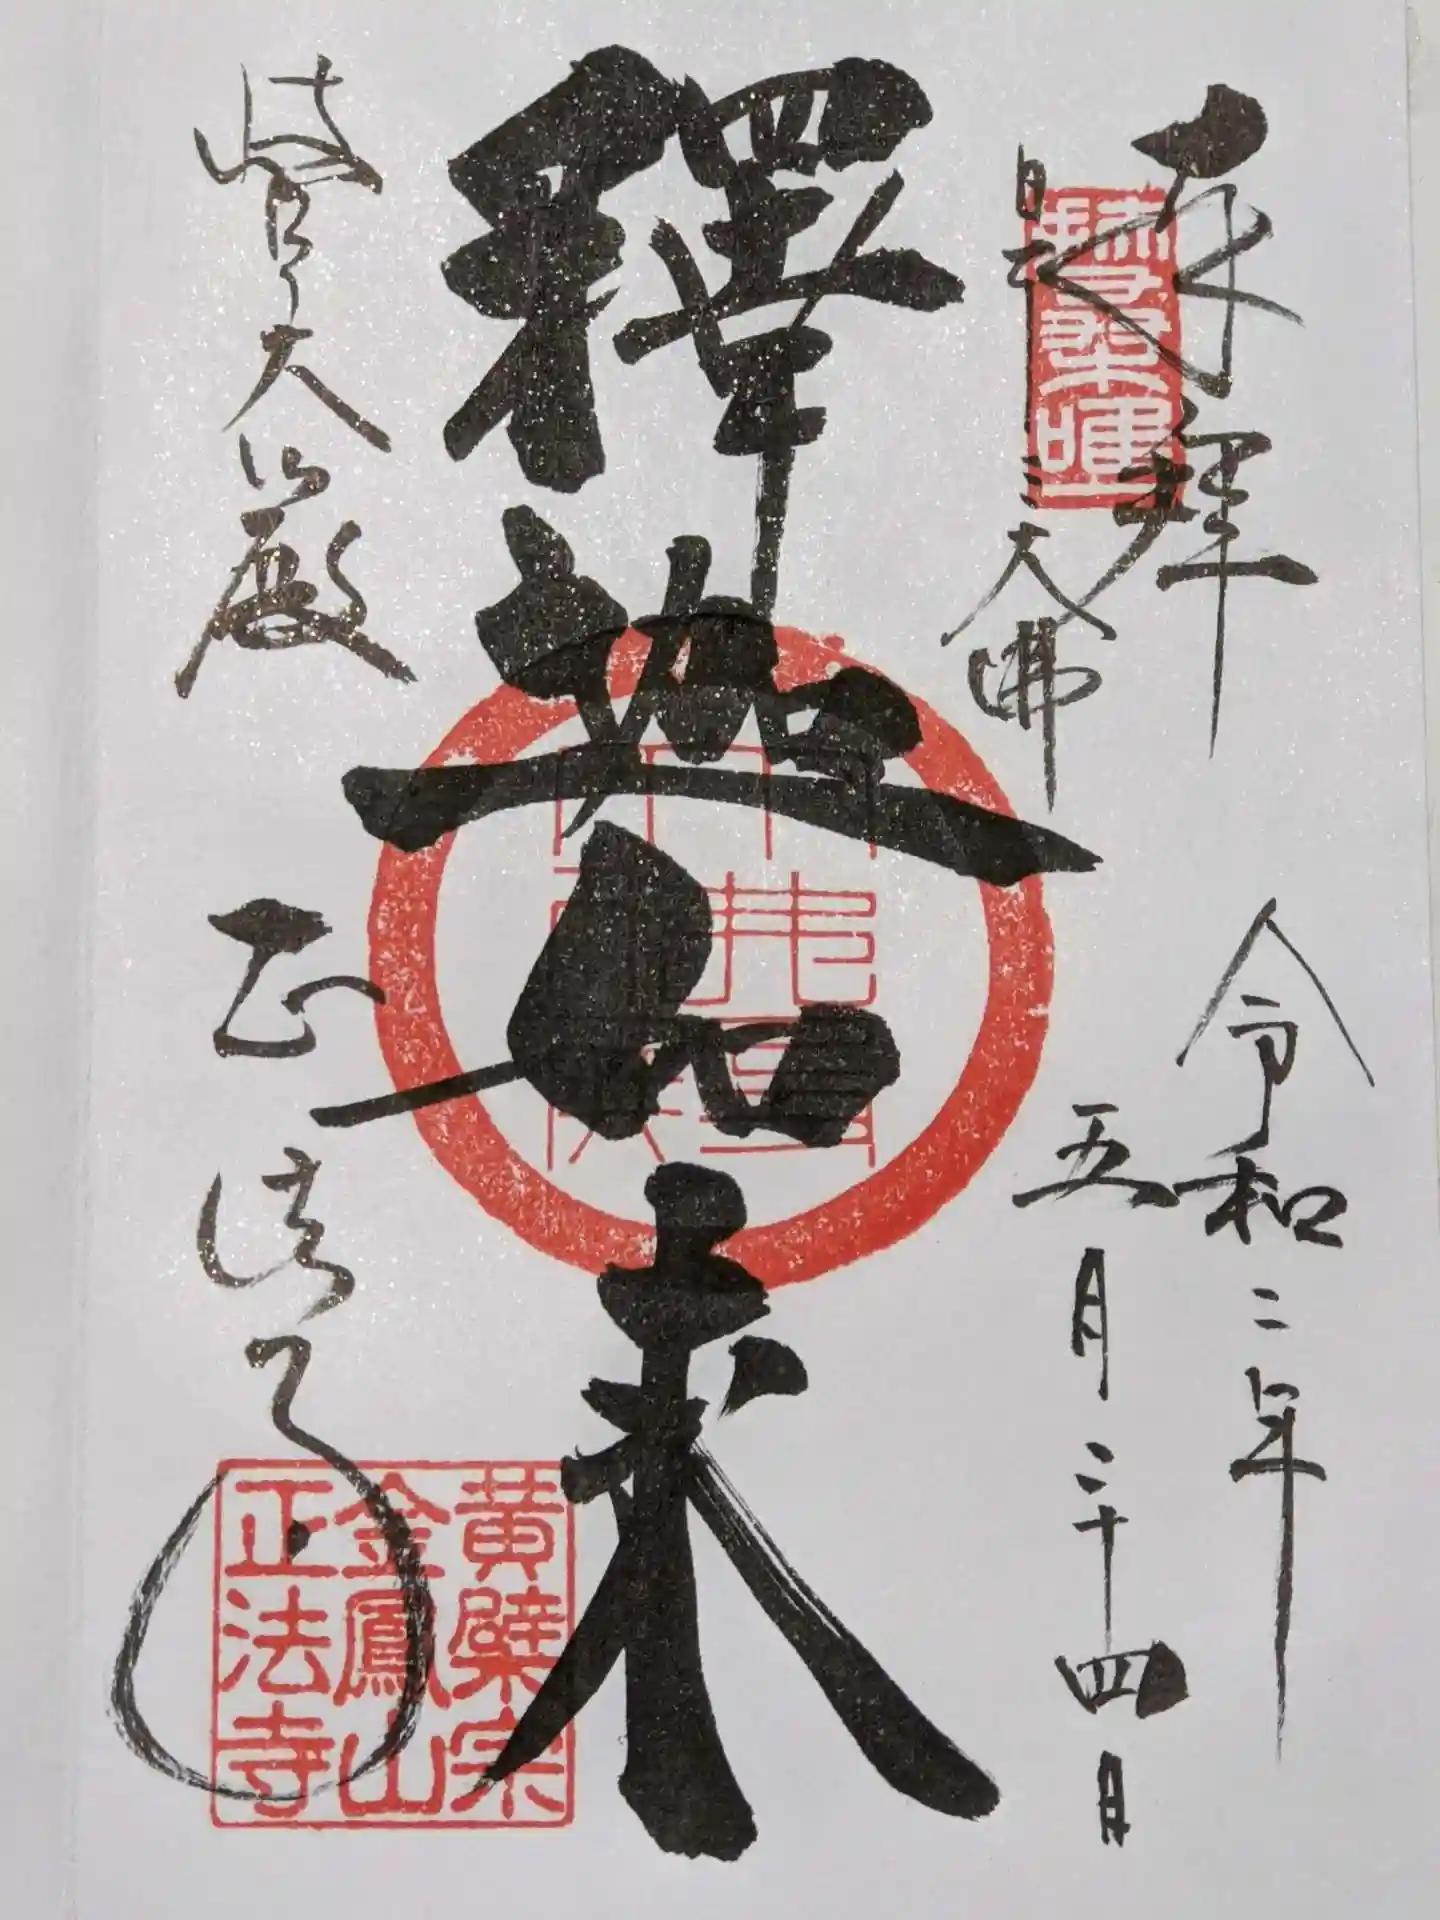 奉拝
日本三大佛
令和二年
五月二十四日
釋迦如来
大佛殿
正法寺
黄檗宗
金鳳山
正法寺